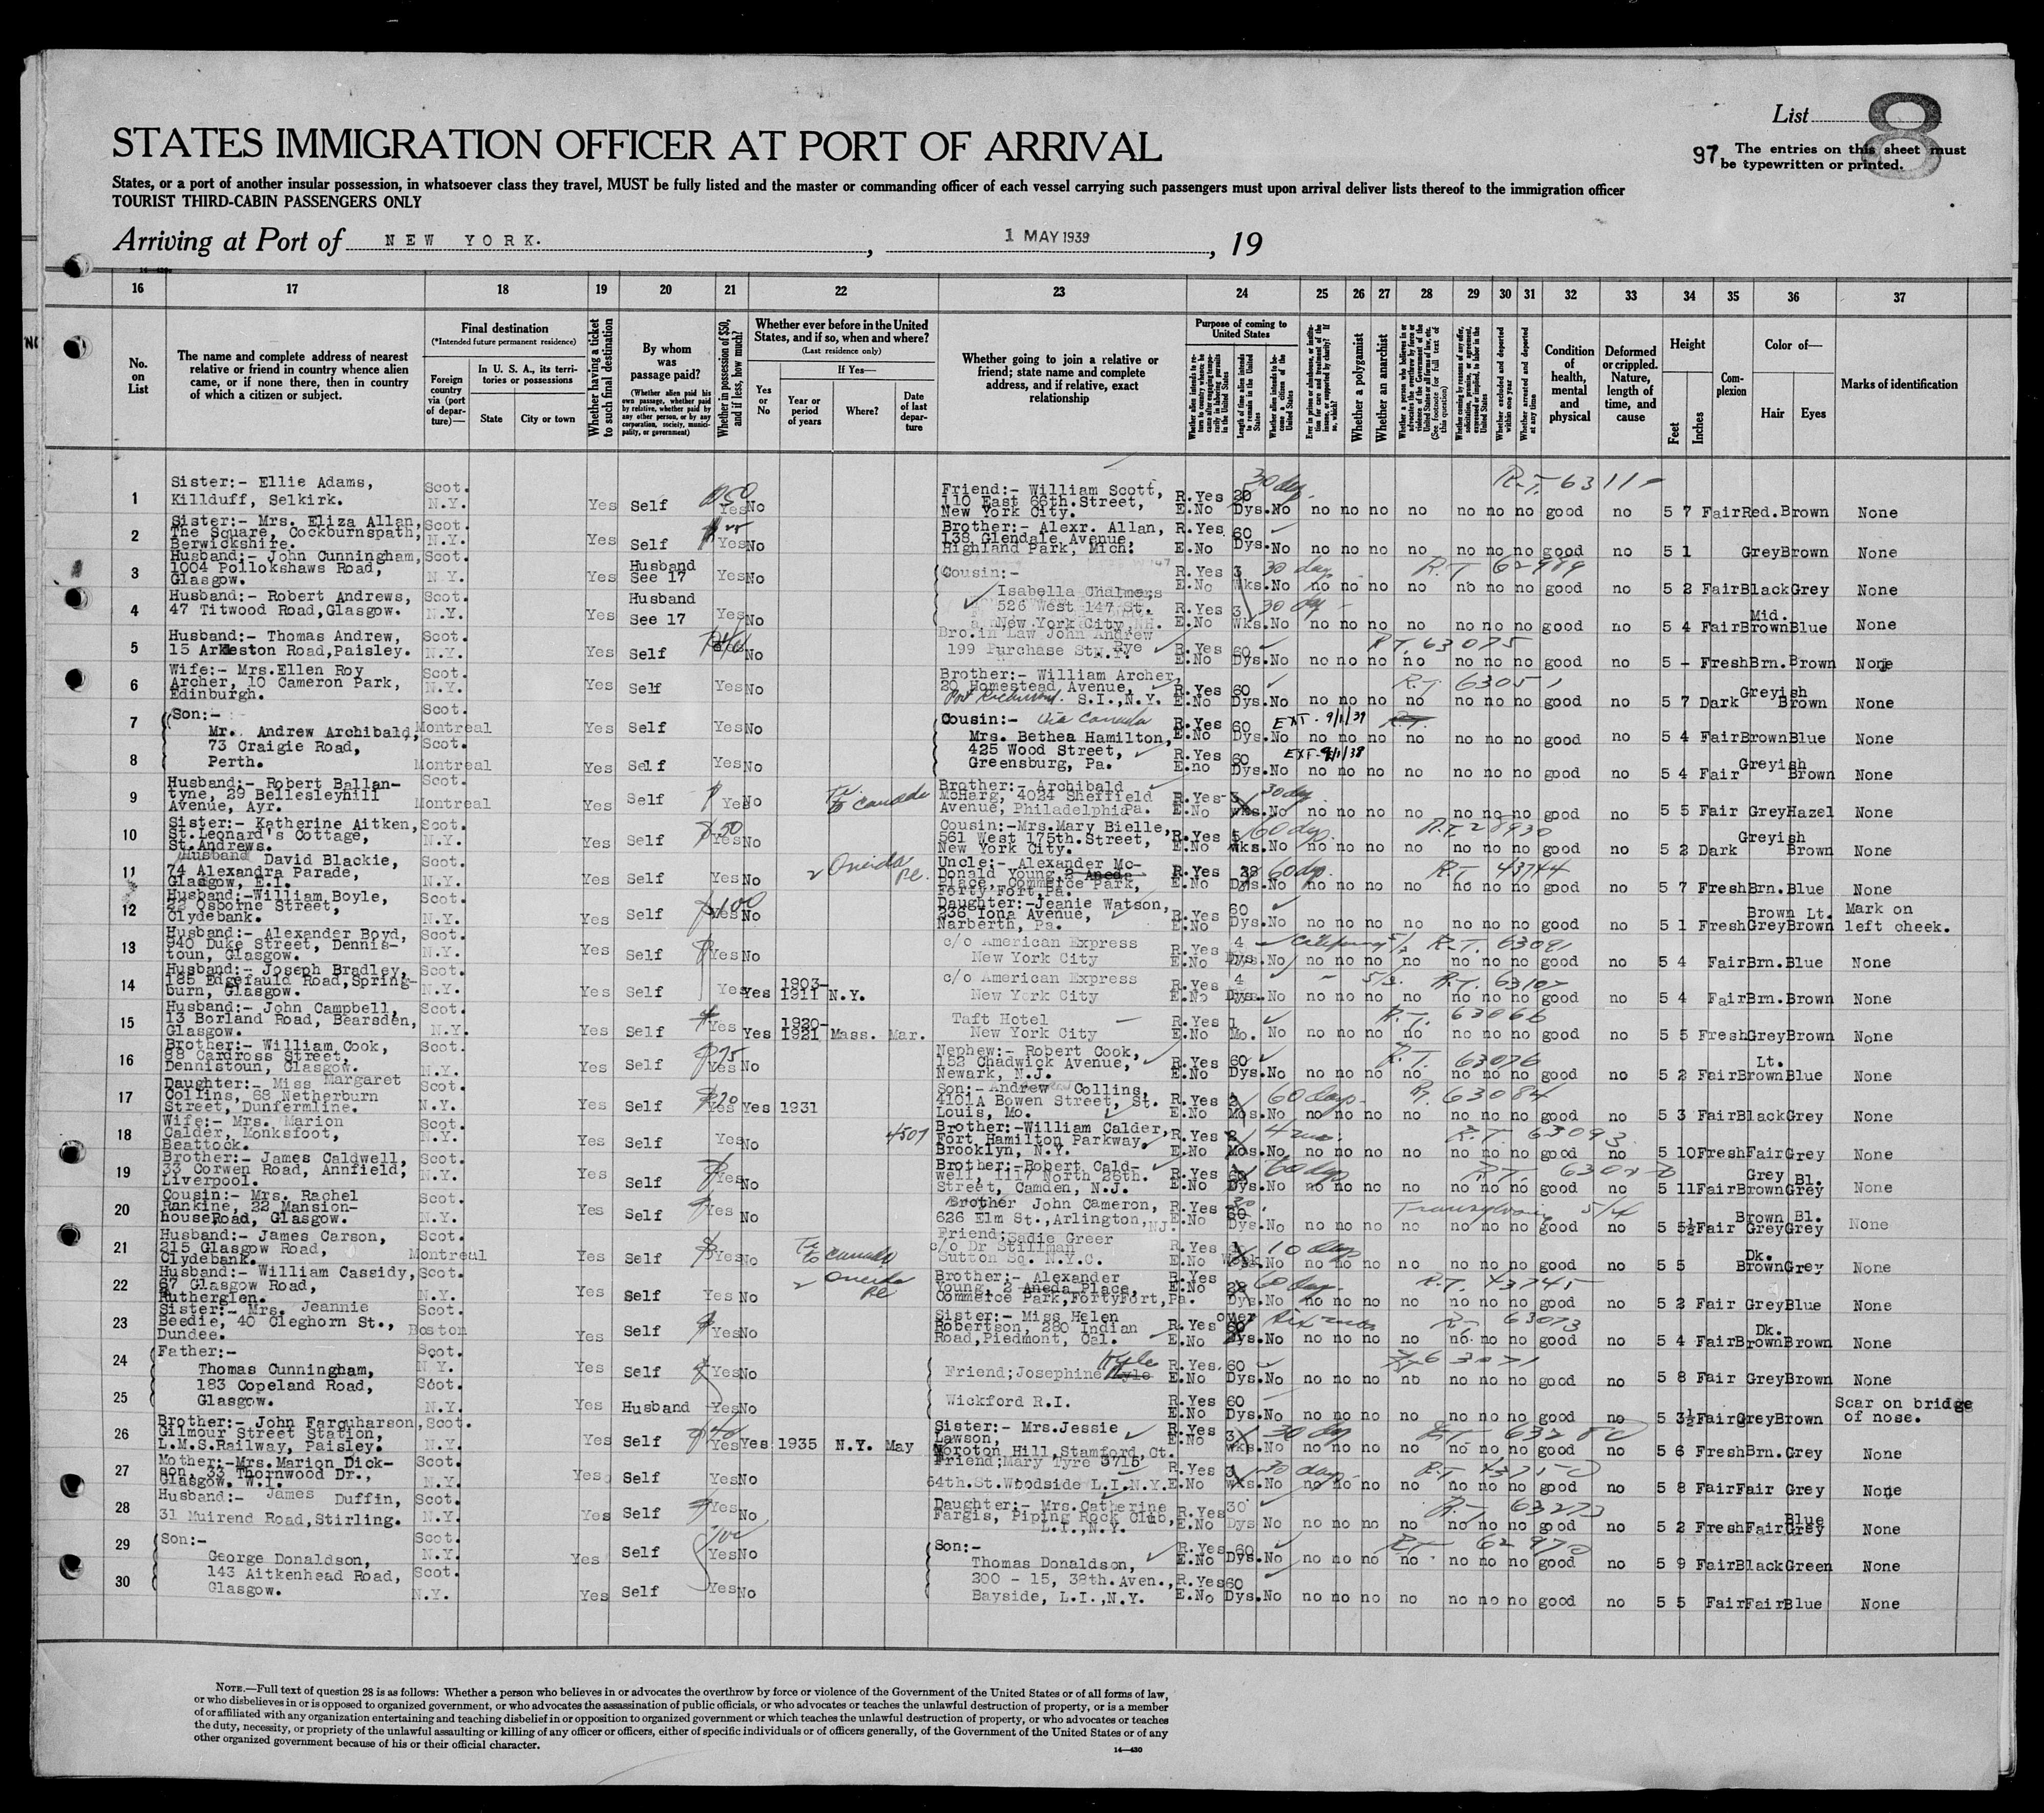 List 8
STATES IMMIGRATION OFFICER AT PORT OF ARRIVAL
97 The entries on this sheet must
be typewritten or printed.
States, or a port of another insular possession, in whatsoever class they travel, MUST be fully listed and the master or commanding officer of each vessel carrying such passengers must upon arrival deliver lists thereof to the immigration officer
TOURIST THIRD-CABIN PASSENGERS ONLY
Arriving at Port of NEW YORK. , 1 MAY 1939 , 19
16 17 18 19 20 21 22 23 24 25 26 27 28 29 30 31 32 33 34 35 36 37
No. on List
The name and complete address of nearest
relative or friend in country whence alien
came, or if none there, then in country
of which a citizen or subject.
Final destination
(*Intended future permanent residence)
Foreign country via (port of departure)—
In U. S. A., its territories or possessions
State City or town
Whether having a ticket to such final destination
By whom was passage paid?
(Whether alien paid his own passage, whether paid by relative, whether paid by any other person, or by any corporation, society, municipality, or government)
Whether in possession of $50, and if less, how much?
Whether ever before in the United States, and if so, when and where?
(Last residence only)
Yes or No
If Yes—
Year or period of years
Where?
Date of last departure
Whether going to join a relative or
friend; state name and complete
address, and if relative, exact
relationship
Purpose of coming to United States
Whether a polygamist
Whether an anarchist
Condition of health, mental and physical
Deformed or crippled. Nature, length of time, and cause
Height
Feet Inches
Complexion
Color of—
Hair Eyes
Marks of identification
1 Sister:- Ellie Adams, Killduff, Selkirk. Scot. N.Y. Yes Self Yes No Friend:- William Scott, 110 East 66th. Street, New York City. R.Yes E.No Dys. No no no no no no no no good no 5 7 Fair Red. Brown None
2 Sister:- Mrs. Eliza Allan, The Square, Cockburnspath, Berwickshire. Scot. N.Y. Yes Self Yes No Brother:- Alexr. Allan, 138 Glendale Avenue, Highland Park, Mich. R.Yes E.No 60 Dys. No no no no no no no no good no 5 1 Grey Brown None
3 Husband:- John Cunningham, 1004 Pollokshaws Road, Glasgow. Scot. N.Y. Yes Husband See 17 Yes No Cousin:- R.Yes E.No 3 Wks. No 30 days R.T. 62989 no no no no no no no good no 5 2 Fair Black Grey None
4 Husband:- Robert Andrews, 47 Titwood Road, Glasgow. Scot. N.Y. Yes Husband See 17 Yes No Isabella Chalmers 526 West 147 St. New York City R.Yes E.No 3 Wks. No no no no no no no no good no 5 4 Fair Mid. Brown Blue None
5 Husband:- Thomas Andrew, 15 Arkleston Road, Paisley. Scot. N.Y. Yes Self No Bro.in Law John Andrew 199 Purchase St. Rye N.Y. R.Yes E.No 60 Dys. No R.T. 63075 no no no no no no no good no 5 - Fresh Brn. Brown None
6 Wife:- Mrs. Ellen Roy Archer, 10 Cameron Park, Edinburgh. Scot. N.Y. Yes Self Yes No Brother:- William Archer, 20 Homestead Avenue, Port Richmond. S.I., N.Y. R.Yes E.No 60 Dys. No R.T. 63051 no no no no no no no good no 5 7 Dark Greyish Brown None
7 Son:- Mr. Andrew Archibald, Scot. Montreal Yes Self Yes No Cousin:- Via Canada Mrs. Bethea Hamilton, R.Yes E.No 60 Dys. No EXT. 9/1/39 no no no no no no no good no 5 4 Fair Brown Blue None
8 73 Craigie Road, Perth. Scot. Montreal Yes Self Yes No 425 Wood Street, Greensburg, Pa. R.Yes E.no 60 Dys. No no no no no no no no good no 5 4 Fair Greyish Brown None
9 Husband:- Robert Ballantyne, 29 Bellesleyhill Avenue, Ayr. Scot. Montreal Yes Self Yes No to Canada Brother:- Archibald McHarg, 4024 Sheffield Avenue, Philadelphia Pa. R.Yes E.No 3 wks. No 30 days no no no no no no no good no 5 5 Fair Grey Hazel None
10 Sister:- Katherine Aitken, St. Leonard's Cottage, St. Andrews. Scot. N.Y. Yes Self $50 Yes No Cousin:- Mrs. Mary Bielle, 561 West 175th. Street, New York City. R.Yes E.No Wks. No 60 dys. R.T. 28930 no no no no no no no good no 5 2 Dark Greyish Brown None
11 Husband David Blackie, 74 Alexandra Parade, Glasgow, E.1. Scot. N.Y. Yes Self Yes No Oneida Pl. Uncle:- Alexander McDonald Young, 2 Aneda Place, Commerce Park, Forty Fort, Pa. R.Yes E.No 28 Dys. No 60 dys. R.T. 43744 no no no no no no no good no 5 7 Fresh Brn. Blue None
12 Husband:- William Boyle, 22 Osborne Street, Clydebank. Scot. N.Y. Yes Self $100 Yes No Daughter:- Jeanie Watson, 236 Iona Avenue, Narberth, Pa. R.Yes E.No 60 Dys. No no no no no no no no good no 5 1 Fresh Brown Grey Lt. Brown Mark on left cheek.
13 Husband:- Alexander Boyd, 940 Duke Street, Dennistoun, Glasgow. Scot. N.Y. Yes Self Yes No c/o American Express New York City R.Yes E.No 4 Dys. No R.T. 63091 no no no no no no no good no 5 4 Fair Brn. Blue None
14 Husband:- Joseph Bradley, 185 Edgefauld Road, Springburn, Glasgow. Scot. N.Y. Yes Self Yes Yes 1903-1911 N.Y. c/o American Express New York City R.Yes E.No 4 Dys. No R.T. 63107 no no no no no no no good no 5 4 Fair Brn. Brown None
15 Husband:- John Campbell, 13 Borland Road, Bearsden, Glasgow. Scot. N.Y. Yes Self Yes Yes 1920-1921 Mass. Mar. Taft Hotel New York City R.Yes E.No 1 Mo. No R.T. 63066 no no no no no no no good no 5 5 Fresh Grey Brown None
16 Brother:- William Cook, 88 Cardross Street, Dennistoun, Glasgow. Scot. N.Y. Yes Self $75 Yes No Nephew:- Robert Cook, 152 Chadwick Avenue, Newark, N.J. R.Yes E.No 60 Dys. No R.T. 63076 no no no no no no no good no 5 2 Fair Lt. Brown Blue None
17 Daughter:- Miss Margaret Collins, 68 Netherburn Street, Dunfermline. Scot. N.Y. Yes Self $20 Yes Yes 1931 Son:- Andrew Collins, 4101A Bowen Street, St. Louis, Mo. R.Yes E.No 2 Mos. No 60 days R.T. 63084 no no no no no no no good no 5 3 Fair Black Grey None
18 Wife:- Mrs. Marion Calder, Monksfoot, Beattock. Scot. N.Y. Yes Self Yes No 4507 Brother:- William Calder, Fort Hamilton Parkway, Brooklyn, N.Y. R.Yes E.No Mos. No 4 mos. R.T. 63093 no no no no no no no good no 5 10 Fresh Fair Grey None
19 Brother:- James Caldwell, 33 Corwen Road, Annfield, Liverpool. Scot. N.Y. Yes Self Yes No Brother:- Robert Caldwell, 1117 North 26th. Street, Camden, N.J. R.Yes E.No Dys. No 60 dys no no no no no no no good no 5 11 Fair Grey Brown Bl. Grey None
20 Cousin:- Mrs. Rachel Rankine, 22 Mansionhouse Road, Glasgow. Scot. N.Y. Yes Self Yes No Brother John Cameron, 626 Elm St., Arlington, NJ. R.Yes E.No 30 Dys. No Transylvania 5/4 no no no no no no no good no 5 5½ Fair Brown Grey Bl. Grey None
21 Husband:- James Carson, 215 Glasgow Road, Clydebank. Scot. Montreal Yes Self Yes No to Canada Friend; Sadie Greer c/o Dr Stillman Sutton Sq. N.Y.C. R.Yes E.No Week. No 10 days no no no no no no no good no 5 5 Dk. Brown Grey None
22 Husband:- William Cassidy, 67 Glasgow Road, Rutherglen. Scot. N.Y. Yes Self Yes No Oneida Pl. Brother:- Alexander Young, 2 Aneda Place, Commerce Park, Forty Fort, Pa. R.Yes E.No 28 Dys. No 60 days. R.T. 43745 no no no no no no no good no 5 2 Fair Grey Blue None
23 Sister:- Mrs. Jeannie Beedie, 40 Cleghorn St., Dundee. Scot. Boston Yes Self Yes No Sister:- Miss Helen Robertson, 280 Indian Road, Piedmont, Cal. R.Yes E.No over 60 Dys. No Six mos R.T. 63073 no no no no no no no good no 5 4 Fair Dk. Brown Brown None
24 Father:- Thomas Cunningham, Scot. N.Y. Yes Self Yes No Friend; Josephine Kyle R.Yes. E.No 60 Dys. No 63071 no no no no no no no good no 5 8 Fair Grey Brown None
25 183 Copeland Road, Glasgow. Scot. N.Y. Yes Husband Yes No Wickford R.I. R.Yes E.No 60 Dys. No no no no no no no no good no 5 3½ Fair Grey Brown Scar on bridge of nose.
26 Brother:- John Farquharson, Gilmour Street Station, L.M.S. Railway, Paisley. Scot. N.Y. Yes Self Yes Yes 1935 N.Y. May Sister:- Mrs. Jessie Lawson, Noroton Hill, Stamford, Ct. R.Yes E.No 3 wks. No 30 dys no no no no no no no good no 5 6 Fresh Brn. Grey None
27 Mother:- Mrs. Marion Dickson, 33 Thornwood Dr., Glasgow. W.1. Scot. N.Y. Yes Self Yes No Friend; Mary Tyre 3715 64th. St. Woodside L.I. N.Y. R.Yes E.No 3 wks. No 30 days R.T. 43750 no no no no no no no good no 5 8 Fair Fair Grey None
28 Husband:- James Duffin, 31 Muirend Road, Stirling. Scot. N.Y. Yes Self Yes No Daughter:- Mrs. Catherine Fargis, Piping Rock Club, L.I., N.Y. R.Yes E.No 30 Dys No R.T. 63273 no no no no no no no good no 5 2 Fresh Fair Blue Grey None
29 Son:- George Donaldson, Scot. N.Y. Yes Self Yes No Son:- Thomas Donaldson, R.Yes E.No 60 Dys. No R.T. 62970 no no no no no no no good no 5 9 Fair Black Green None
30 143 Aitkenhead Road, Glasgow. Scot. N.Y. Yes Self Yes No 200 - 15, 38th. Aven., Bayside, L.I., N.Y. R.Yes E.No 60 Dys. No no no no no no no no good no 5 5 Fair Fair Blue None
NOTE.—Full text of question 28 is as follows: Whether a person who believes in or advocates the overthrow by force or violence of the Government of the United States or of all forms of law,
or who disbelieves in or is opposed to organized government, or who advocates the assassination of public officials, or who advocates or teaches the unlawful destruction of property, or is a member
of or affiliated with any organization entertaining and teaching disbelief in or opposition to organized government or which teaches the unlawful destruction of property, or who advocates or teaches
the duty, necessity, or propriety of the unlawful assaulting or killing of any officer or officers, either of specific individuals or of officers generally, of the Government of the United States or of any
other organized government because of his or their official character.
14—430